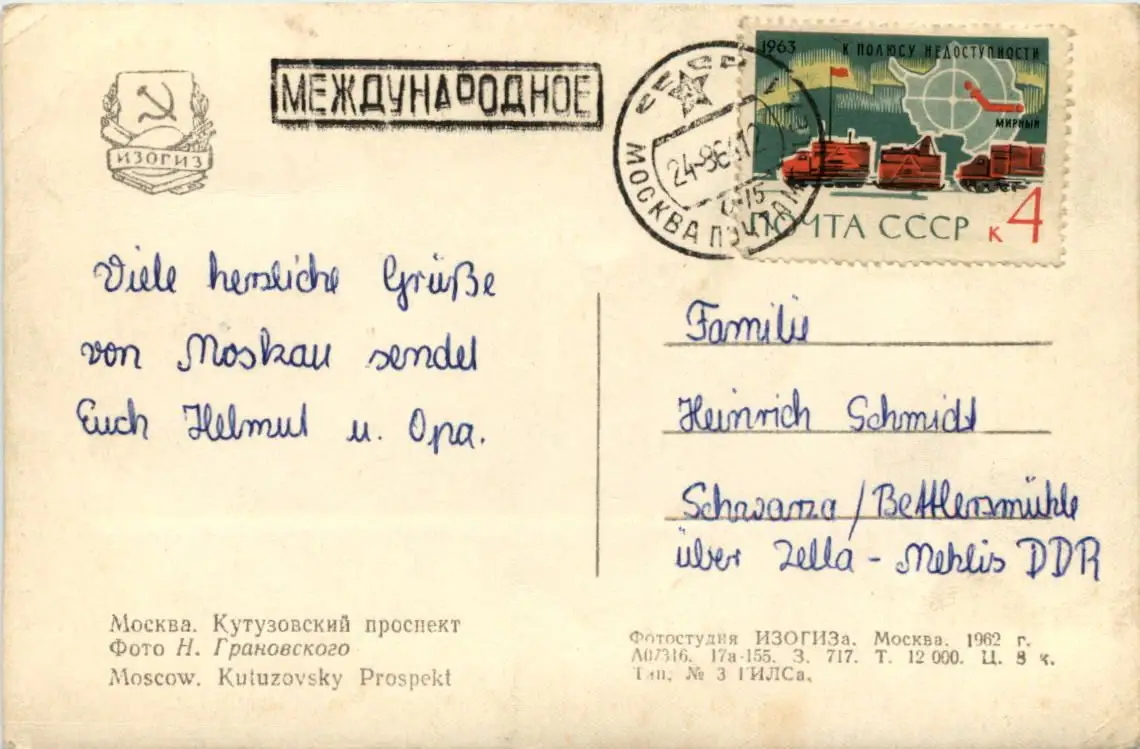 ИЗОГИЗ
МЕЖДУНАРОДНОЕ
МОСКВА ПОЧТАМТ
1963
К ПОЛЮСУ НЕДОСТУПНОСТИ
МИРНЫЙ
ПОЧТА СССР к 4
Viele herzliche Grüße
von Moskau sendet
Euch Helmut u. Opa.
Familie
Heinrich Schmidt
Schwarza / Bettlersmühle
über Zella - Mehlis DDR
Москва. Кутузовский проспект
Фото Н. Грановского
Moscow. Kutuzovsky Prospekt
Фотостудия ИЗОГИЗа. Москва. 1962 г.
А07316. 17а-155. З. 717. Т. 12 000. Ц. 3 к.
Тип. № 3 ГИЛСа.